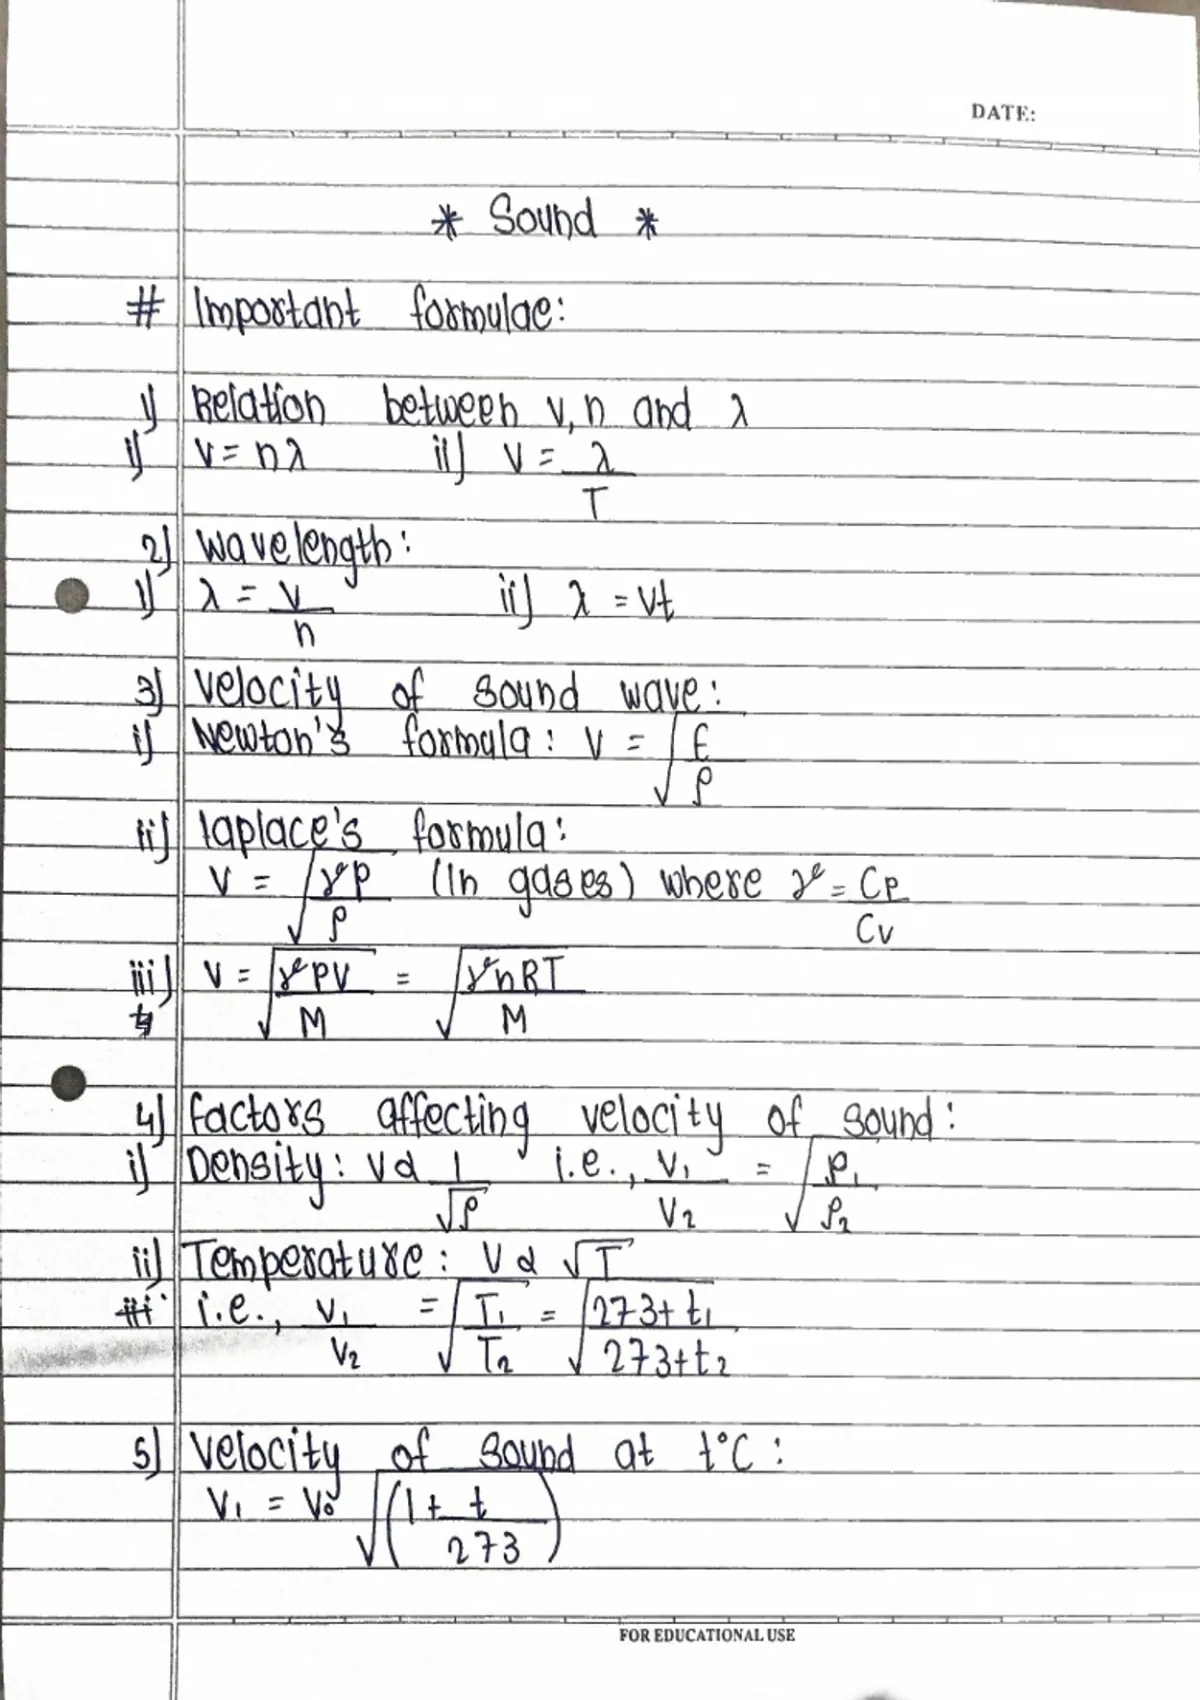 DATE:
* Sound *
# Important formulae:
1) Relation between v, n and λ
i) v = nλ ii) v = λ/T
2) wavelength:
i) λ = v/n ii) λ = vt
3) velocity of sound wave:
i) Newton's formula: v = √(E/ρ)
ii) laplace's formula:
v = √(γP/ρ) (In gases) where γ = Cp/Cv
iii) v = √(γPV/M) = √(γnRT/M)
4) factors affecting velocity of sound:
i) Density: v α 1/√ρ i.e., v₁/v₂ = √(ρ₁/ρ₂)
ii) Temperature: v α √T
i.e., v₁/v₂ = √(T₁/T₂) = √(273+t₁/273+t₂)
5) velocity of sound at t°C:
v₁ = v₀ √(1+t/273)
FOR EDUCATIONAL USE